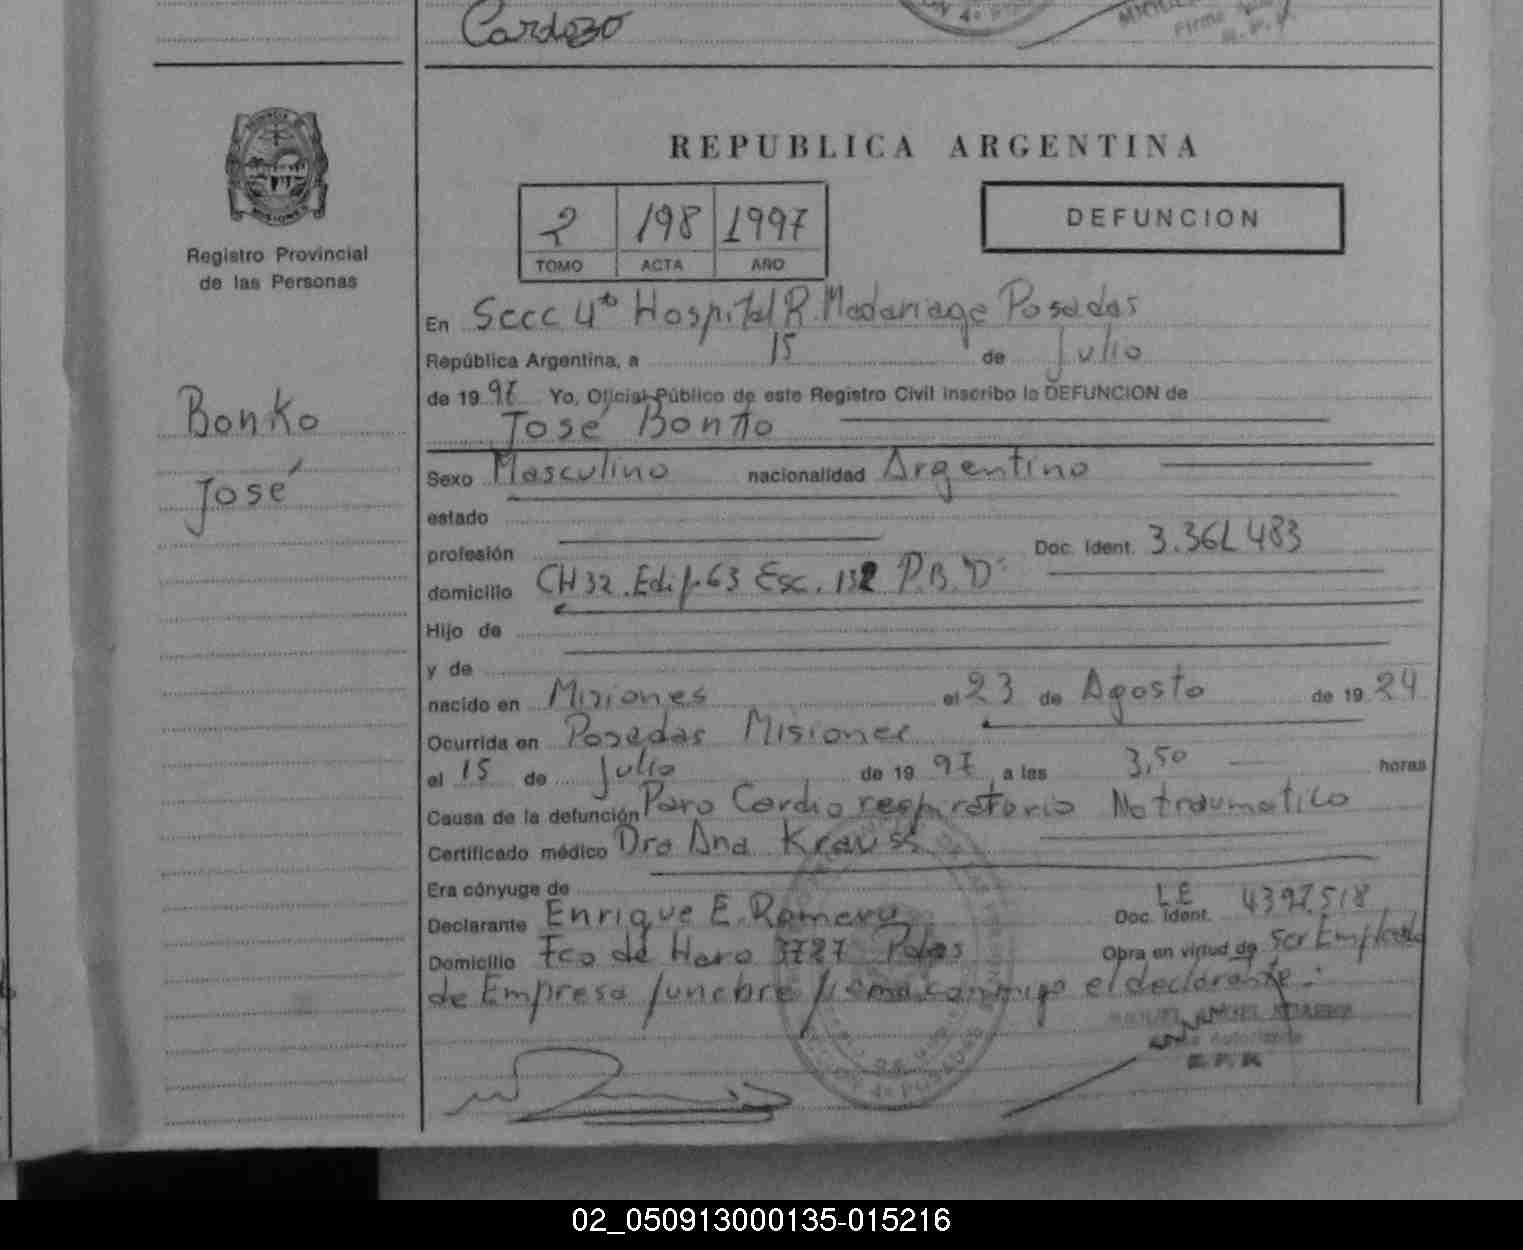 Cardozo
REPUBLICA ARGENTINA
Registro Provincial
de las Personas
2 198 1997
TOMO ACTA AÑO
DEFUNCION
Bonko
José
En Secc 4ta Hospital R. Madariaga Posadas
República Argentina, a 15 de Julio
de 19 97 Yo, Oficial Público de este Registro Civil inscribo la DEFUNCION de
José Bonko
Sexo Masculino nacionalidad Argentino
estado
profesión Doc. Ident. 3.361.483
domicilio CH 32. Edif. 63 Esc. 132 P.B. "D"
Hijo de
y de
nacido en Misiones el 23 de Agosto de 19 24
Ocurrida en Posadas Misiones
el 15 de Julio de 19 97 a las 3,50 horas
Causa de la defunción Paro Cardio respiratorio No traumatico
Certificado médico Dra Ana Krauss
Era cónyuge de
Declarante Enrique E. Romero Doc. Ident. LE 4397518
Domicilio Fco de Haro 3727 Pdas Obra en virtud de Ser Empleado
de Empresa funebre firma conmigo el declarante:
02_050913000135-015216